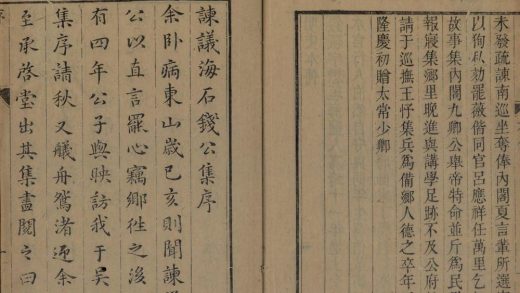 未發疏諫南巡坐奪俸內閣夏言輩所選
以侚私劾罷薇偕同官呂應祥任萬里乞
故事集內閣九卿公舉帝特命並斥爲民
報寢集鄉里晚進與講學足跡不及公府
請于巡撫王忬集兵爲備鄉人德之卒年
隆慶初贈太常少卿
諫議海石錢公集序
余卧病東山歲己亥則聞諫
公以直言罷心竊鄉徃之後
有四年公子與映訪我于吳
集序請秋又艤舟鴛渚迎余
至承啓堂出其集盡閱之曰
序